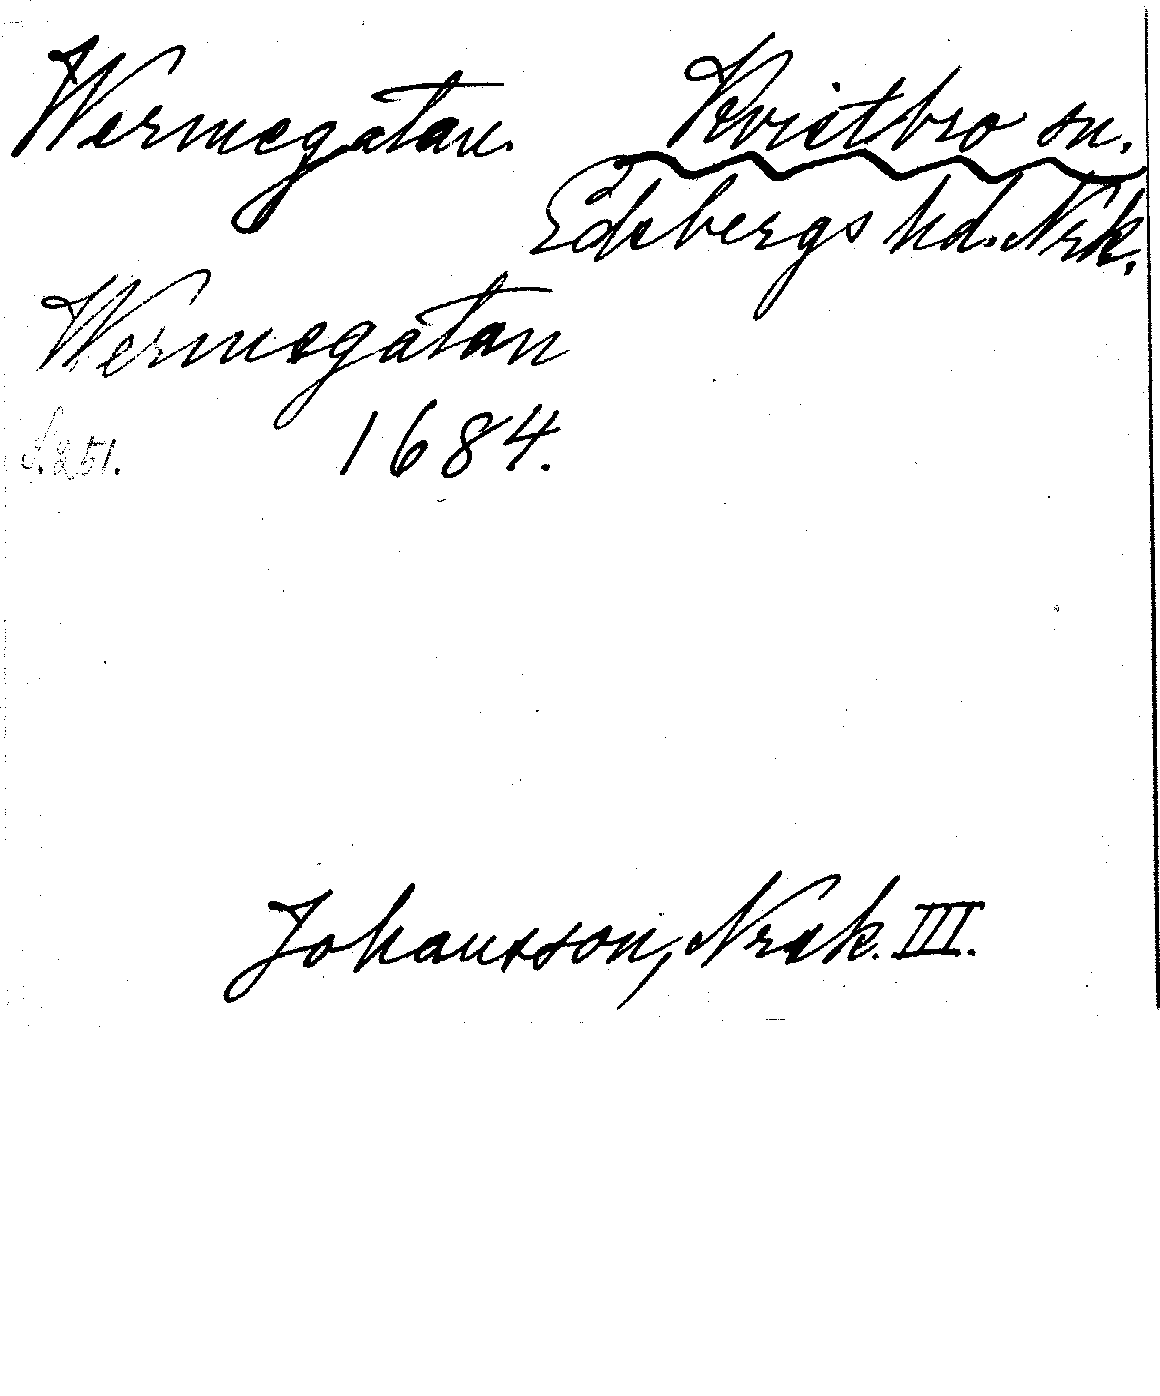 Wermegatan.
Kvistbro sn.
Edsbergs hd. Nrk.
Wermegatan
S. 251.
1684.
Johansson, Noraskog. III.